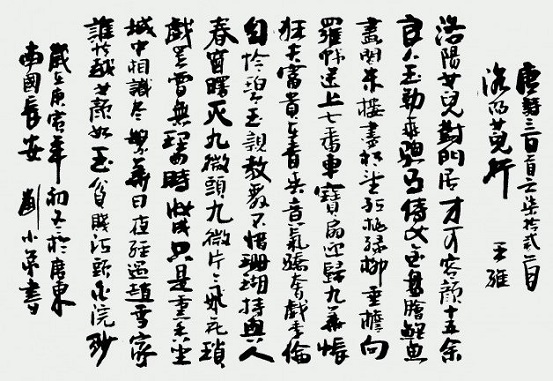 唐詩三百首之柒拾貳首
洛陽女兒行 王維
洛陽女兒對門居才可容顏十五余
良人玉勒乘驄馬侍女金盤膾鯉魚
畫閣朱樓盡相望紅桃綠柳垂檐向
羅帷送上七香車寶扇迎歸九華帳
狂夫富貴在青春意氣驕奢戲季倫
自怜碧玉親教舞不惜珊瑚持與人
春窗曙灭九微九微片片飛花瑣
戲罢曾無理曲時妝成只是熏香坐
城中相識尽繁華日夜經過趙李家
誰怜越女顏如玉貧賤江頭自浣紗
歲在庚寅年初於廣東
南國長安 劉小書